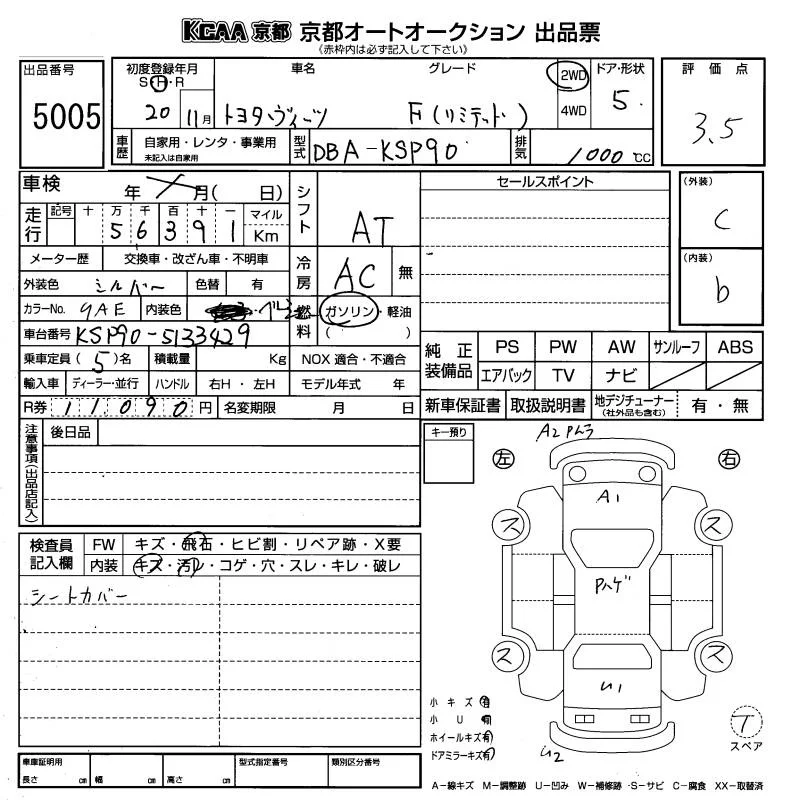 KCAA 京都 京都オートオークション 出品票
《赤枠内は必ず記入して下さい》
出品番号 5005
初度登録年月 S・H・R 20 11月
車名 トヨタ ヴィッツ
グレード F (リミテッド)
2WD 4WD
ドア・形状 5
評価点 3.5
車歴 自家用・レンタ・事業用 未記入は自家用
型式 DBA-KSP90
排気 1000 cc
車検 年 月( 日)
走行 記号 十 万 千 百 十 一 マイル
5 6 3 9 1 Km
シフト AT
メーター歴 交換車・改ざん車・不明車
外装色 シルバー 色替 有
冷房 AC 無
カラーNo. 9AE 内装色 ・ベージュ
燃料 ガソリン・軽油 ( )
車台番号 KSP90-5133429
乗車定員 (5)名 積載量 Kg NOX 適合・不適合
輸入車 ディーラー・並行 ハンドル 右H・左H モデル年式 年
R券 11090円 名変期限 月 日
セールスポイント
(外装) C
(内装) b
純正装備品 PS PW AW サンルーフ ABS
エアバック TV ナビ
新車保証書 取扱説明書 地デジチューナー (社外品も含む) 有・無
注意事項(出品店記入) 後日品
キー預り
検査員記入欄 FW キズ・飛石・ヒビ割・リペア跡・X要
内装 キズ・汚レ・コゲ・穴・スレ・キレ・破レ
シートカバー
A2 Pムラ
左 右
A1
ス ス
Pハゲ
ス ス
U1
U2
小キズ 有
小U 有
ホイールキズ 有
ドアミラーキズ 有
T
スペア
車庫証明用 長さ cm 幅 cm 高さ cm
型式指定番号 類別区分番号
A-線キズ M-調整跡 U-凹み W-補修跡 S-サビ C-腐食 XX-取替済